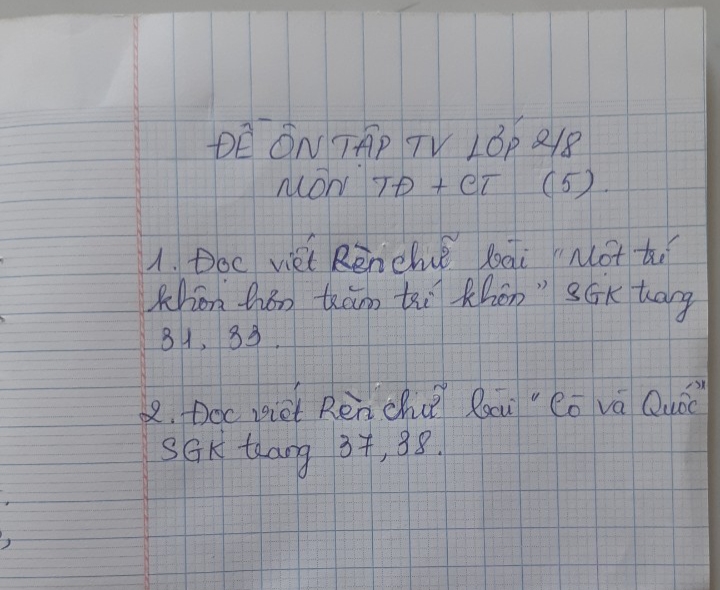 ĐỀ ÔN TẬP TV LỚP 2/8
MÔN TĐ + CT (5).
1. Đọc viết Rèn chữ bài "Một trí
khôn hơn trăm trí khôn" SGK trang
31, 33.
2. Đọc viết Rèn chữ bài "Cò và Quốc"
SGK trang 37, 38.